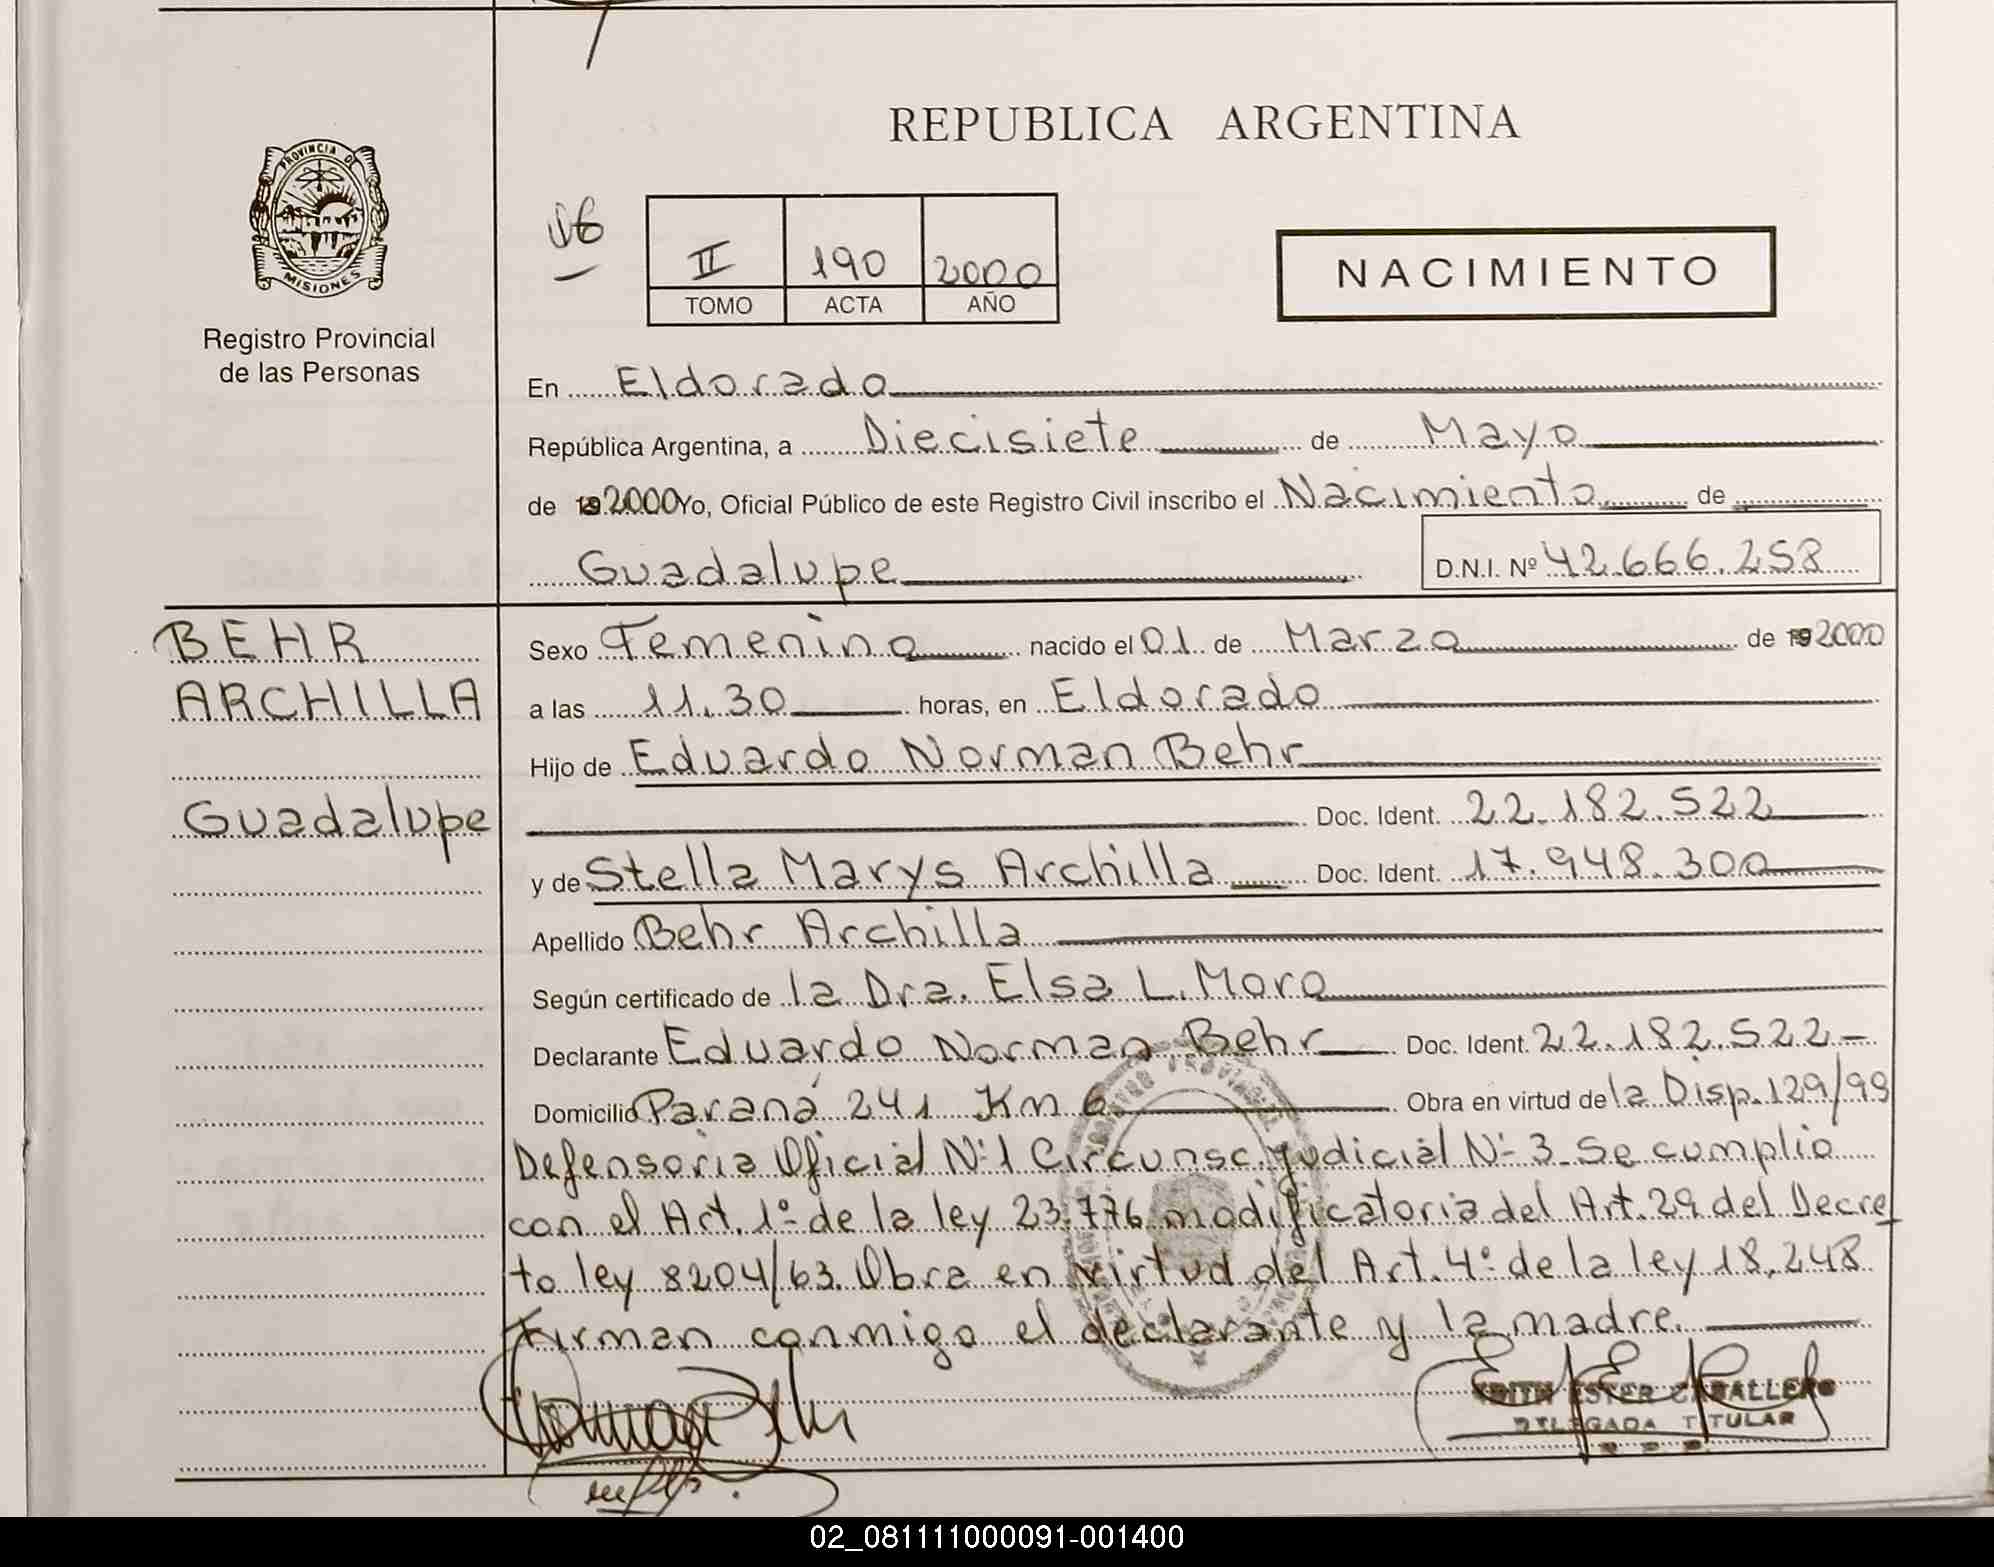 REPUBLICA ARGENTINA
PROVINCIA DE
MISIONES
Registro Provincial
de las Personas
06
II 190 2000
TOMO ACTA AÑO
NACIMIENTO
En Eldorado
República Argentina, a Diecisiete de Mayo
de 19 2000 Yo, Oficial Público de este Registro Civil inscribo el Nacimiento de
Guadalupe D.N.I. Nº 42.666.258
BEHR
ARCHILLA
Guadalupe
Sexo Femenino nacido el 01 de Marzo de 19 2000
a las 11.30 horas, en Eldorado
Hijo de Eduardo Norman Behr
Doc. Ident. 22.182.522
y de Stella Marys Archilla Doc. Ident. 17.948.300
Apellido Behr Archilla
Según certificado de la Dra. Elsa L. Moro
Declarante Eduardo Norman Behr Doc. Ident. 22.182.522-
Domicilio Paraná 241 Km 6 Obra en virtud de la Disp. 129/98
Defensoria Oficial Nº 1 Circunsc. Judicial Nº 3. Se cumplio
con el Art. 1º de la ley 23.776 modificatoria del Art. 29 del Decre
to ley 8204/63. Obra en virtud del Art. 4º de la ley 18.248
Firman conmigo el declarante y la madre.
EDITH ESTER CABALLERO
DELEGADA TITULAR
02_081111000091-001400